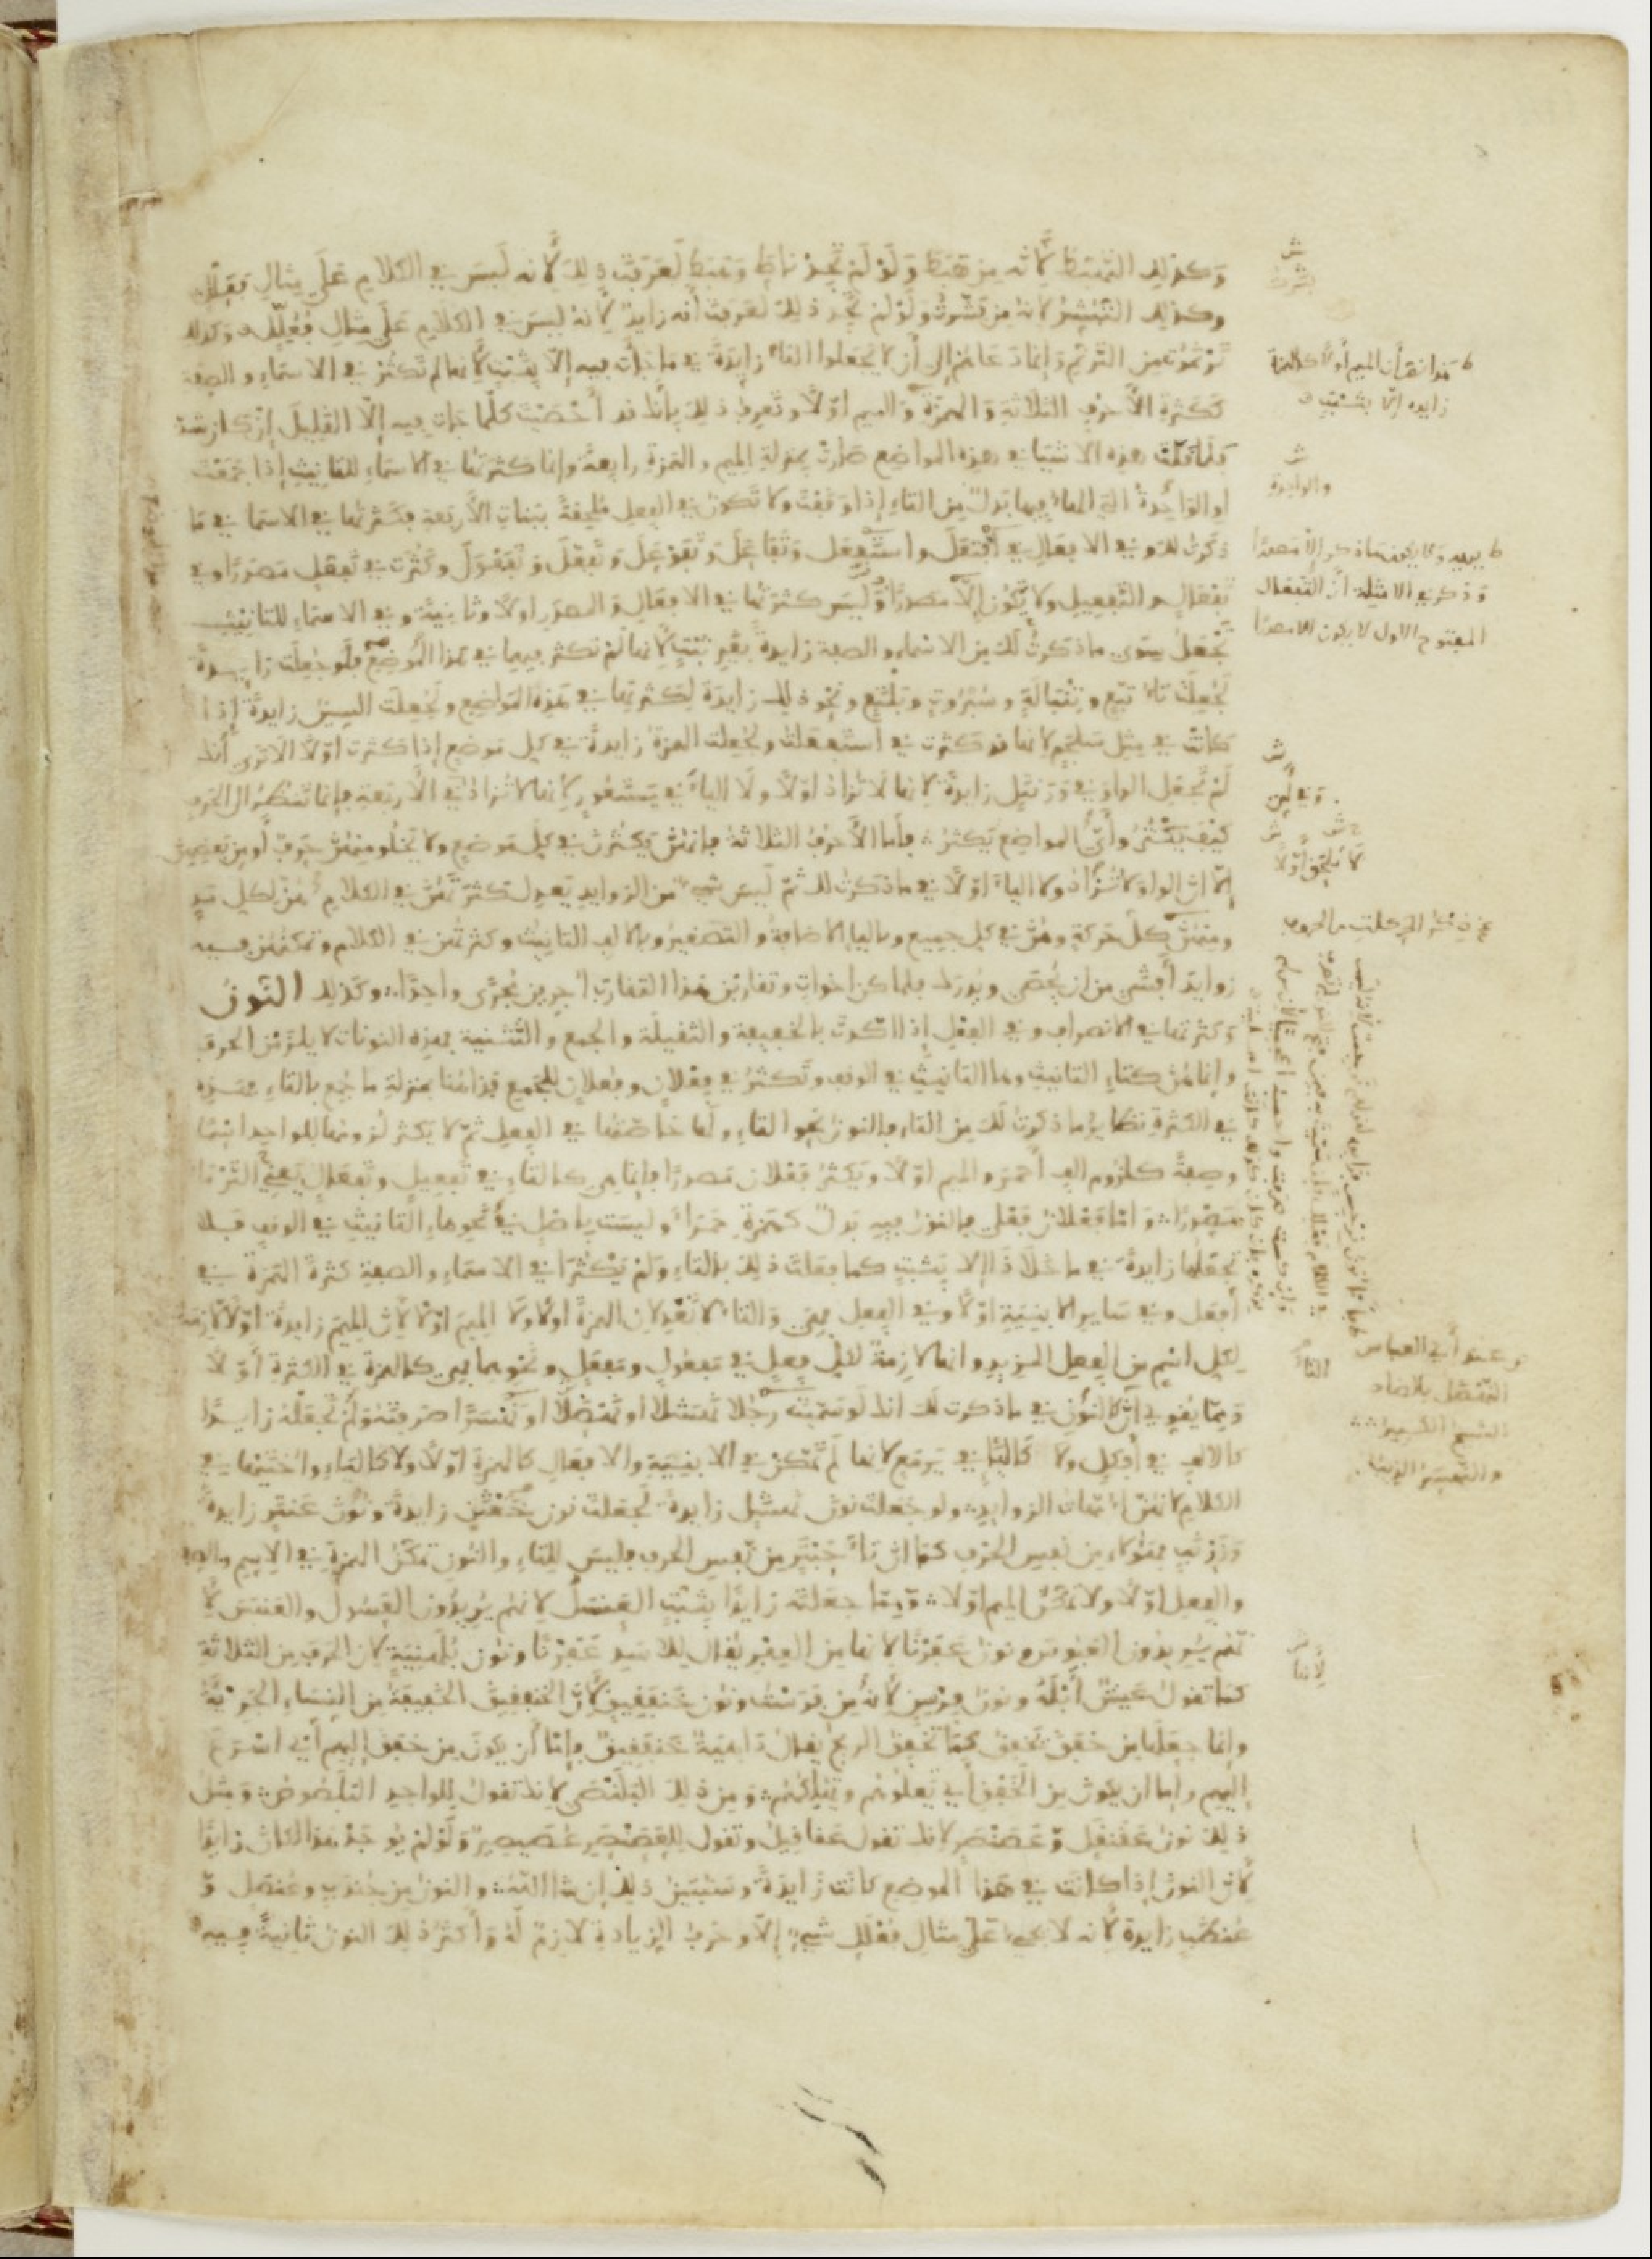 وكذلك التهبط لأنه من هبط ولو لم تجد ناط وهبط لعرفت ذلك لأنه ليس في الكلام على مثال فعلل
وكذلك التبشر لأنه من بشرت ولو لم تجد ذلك لعرفت أنه زايد لأنه ليس في الكلام على مثال فعلل وكذلك
ترنموت من الترنم وإنما دعاهم إلى أن لا يجعلوا التاء زايدة في ما جات فيه إلا بثبت لأنها لم تكثر في الاسماء والصفة
ككثرة الأحرف الثلاثة والهمزة والميم اولا وتعرف ذلك بأنك قد أحصيت كلما جات فيه إلا القليل إن كان شذ
فلما قلت هذه الاشيا في هذه المواضع صارت بمنزلة الميم والهمزة رابعة وإنما كثرتها في الاسماء للتانيث إذا جمعت
او الواحدة التي الهاء فيها بدل من التاء إذا وقفت ولا تكون في الفعل ملحقة ببنات الأربعة فكثرتها في الاسما في ما
ذكرت لك وفي الافعال في افتعل واستفعل وتفاعل وتفوعل وتفعل وتفعول وكثرت في تفعل مصدرا وفي
تفعال والتفعيل ولا يكون إلا مصدرا وليس كثرتها في الافعال والمصدر اولا وثانية وفي الاسماء للتانيث
تجعل سوى ما ذكرت لك من الاسماء والصفة زايدة بغير ثبت لأنها لم تكثر فيهما في هذا الموضع فلو جعلت زايدة
لجعلت تاء تبع وتنبالة وسبروت وبلتع ونحو ذلك زايدة لكثرتها في هذه المواضع ولجعلت السين زايدة إذا
كانت في مثل سلجم لأنها قد كثرت في استفعلت ولجعلت الهمزة زايدة في كل موضع إذا كثرت اولا الا ترى أنك
لم تجعل الواو في ورنتل زايدة لأنها لا تزاد اولا ولا الياء في يستعور لأنها لا تزاد في الأربعة فإنما تنظر إلى الحرف
كيف يكثر وأي المواضع يكثر فأما الأحرف الثلاثة فإنهن يكثرن في كل موضع ولا يخلو منهن حرف أو من بعضهن
إلا ان الواو لا تزاد ولا الياء اولا في ما ذكرت لك ثم ليس شيء من الزوايد يعدل كثرتهن في الكلام هن لكل مد
ومنهن كل حركة وهن في كل جميع وبالياء الاضافة والتصغير وبالالف التانيث وكثرتهن في الكلام وتمكنهن فيه
زوايد أفشى من ان يحصى ويدرك فلما كن اخوات وتقاربن هذا التقارب اجرين مجرى واحدا وكذلك النون
وكثرتها في الانصراف وفي الفعل إذا اكدت بالخفيفة والثقيلة والجمع والتثنية فهذه النونات لا يلزمن الحرف
وإنما هن كتاء التانيث وها التانيث في الوقف وتكثر في فعلان وفعلان للجمع فزادتها بمنزلة ما جمع بالتاء فهذه
في الكثرة نظايرها ذكرت لك من التاء فالنون نحو التاء ولها خاصتها في الفعل ثم لا يكثر لزومها للواحد اسما
وصفة كلزوم الف أحمر والميم اولا ويكثر فعلان مصدرا فإنما هي كالتاء في تفعيل وتفعال يعني الترما
مصدرا واما فعلان فعلى فالنون فيه بدل كهمزة حمراء وليست باصل في نحو هاء التانيث في الوقف فلا
تجعلها زايدة في ما خلا ذا إلا بثبت كما فعلت ذلك بالتاء ولم يكثرا في الاسماء والصفة كثرة الهمزة في
أفعل وفي ساير الابنية اولا وفي الفعل فهي والتاء لا تعدلان الهمزة اولا ولا الميم اولا لأن الميم زايدة اولا لازمة
لكل اسم من الفعل المزيد وانها لازمة لكل فعل في مفعول ومفعل ونحوهما فهي كالهمزة في الكثرة أولا
ومما يقوي أن النون في ما ذكرت لك انك لو سميت رجلا نهشلا او نهضلا او نهسرا صرفته ولم تجعله زايدا
كالالف في أفكل ولا كالياء في يرمع لأنها لم تمكن في الابنية والافعال كالهمزة اولا ولا كالياء واختيها في
الكلام لأنهن امهات الزوايد ولو جعلت نون نهشل زايدة لجعلت نون جعثن زايدة ونون عنتر زايدة
وزرنب فهؤلاء من نفس الحرف كما ان تاء حبتر من نفس الحرف فليس للتاء والنون تمكن الهمزة في الاسم والصفة
والفعل اولا ولا تمكن الميم اولا ومما جعلته زايدا بثبت العنسل لأنهم يريدون العسول والعنبس لأ
نهم يريدون العبوس ونون عفرنا لأنها من العفر يقال للاسد عفرنا ونون بلهنية لأن الحرف من الثلاثة
كما تقول عيش أبله ونون فرسن لأنه من فرست ونون خنفقيق لأن الخنفقيق الخفيفة من النساء الجريئة
وإنما جعلتها من خفق يخفق كما تخفق الريح يقال داهية خنفقيق فإما أن يكون من خفق إليهم أي اسرع
إليهم وإما ان يكون من الخفق أي يعلوهم ويهلكهم ومن ذلك البلنصى لأنك تقول للواحد البلصوص ومثل
ذلك نون عقنقل وعصنصر لأنك تقول عقاقيل وتقول للعصنصر عصيصير ولو لم يوجد هذا لكان زايدا
لأن النون إذا كانت في هذا الموضع كانت زايدة وسنبين ذلك إن شا الله والنون من جندب وعنصل و
عنظب زايدة لأنه لا يجيء على مثال فعلل شيء إلا وحرف الزيادة لازم له وأكثر ذلك النون ثانية فيه
ش
بشرت
هذا نقض أن الميم أولا كالهمزة
زايدة إلا بثبت
ش
والواحدة
وذكر في الامثلة أن التفعال
المفتوح الاول لا يكون إلا مصدرا
ش
ش
تلحق اولا
وعند أبي العباس
التاء
لأنها